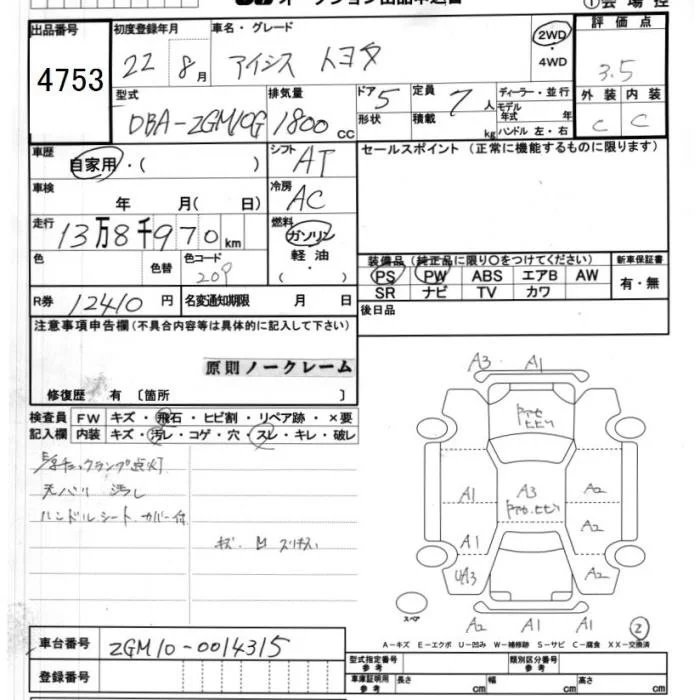 オークション出品申込書
①会場控
出品番号
4753
初度登録年月
22年 8月
車名・グレード
アイシス トヨタ
2WD
・
4WD
評価点
3.5
外装 内装
C C
型式
DBA-ZGM10G
排気量
1800 cc
ドア 5
形状
定員 7人
積載 kg
ディーラー・並行
モデル年式 年
ハンドル 左・右
車歴
自家用・( )
シフト
AT
セールスポイント (正常に機能するものに限ります)
車検
年 月( 日)
冷房
AC
走行
13万8千970km
燃料
ガソリン
軽油
・
( )
色
色替
色コード
209
装備品(純正品に限り○をつけてください)
PS PW ABS エアB AW
SR ナビ TV カワ
新車保証書
有・無
R券 12410円
名変通知期限 月 日
後日品
注意事項申告欄(不具合内容等は具体的に記入して下さい)
原則ノークレーム
修復歴 有 〔箇所 〕
検査員 FW キズ・飛石・ヒビ割・リペア跡・×要
記入欄 内装 キズ・汚レ・コゲ・穴・スレ・キレ・破レ
点灯
天バリ 汚レ
ハンドル.シート カバー付
キズ. 凹
A3 A1
A1 A3 A2
A2
A1
UA3 A2
スペア
A2 A1 A1 2
A-キズ E-エクボ U-凹み W-補修跡 S-サビ C-腐食 XX-交換済
車台番号 ZGM10-0014315
登録番号
型式指定番号
参考
類別区分番号
参考
車庫証明用
参考
長さ cm 幅 cm 高さ cm